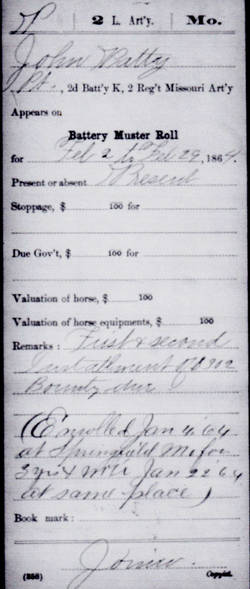 P | 2 L. Art'y. | Mo.
John Pitty
Pvt., 2d Batt'y K, 2 Reg't Missouri Art'y
Appears on
Battery Muster Roll
for Feb 2 to Feb 29, 1864.
Present or absent Present
Stoppage, $ 100 for
Due Gov't, $ 100 for
Valuation of horse, $ 100
Valuation of horse equipments, $ 100
Remarks: First & second
Installment of $302
Bounty due
(Enrolled Jan 4, 64
at Springfield Mo for
3 yrs & Jan 22 64
at same place)
Book mark:
(358) Copyist.